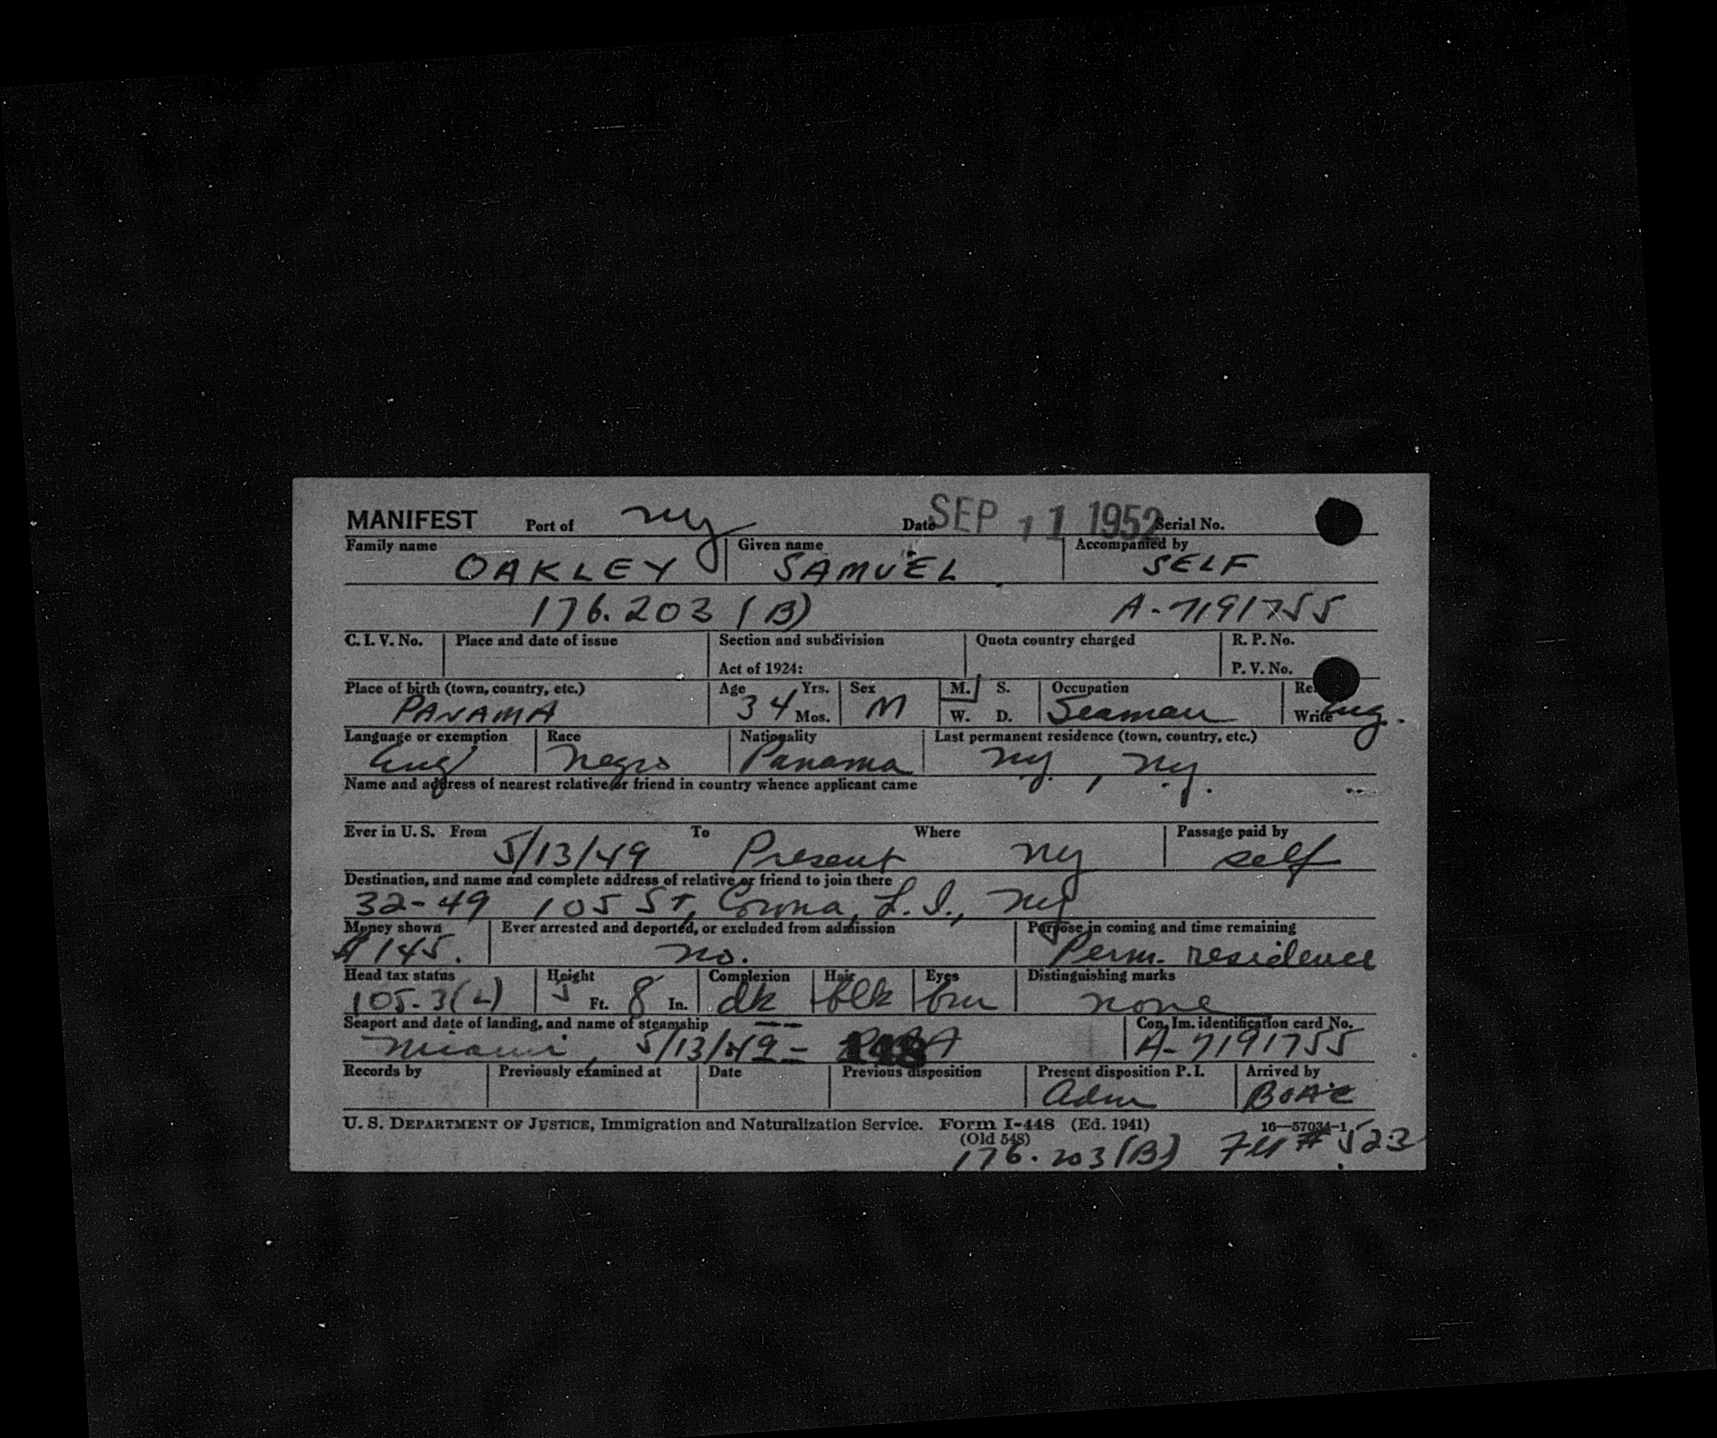 MANIFEST Port of NY Date SEP 11 1952 Serial No.
Family name Given name Accompanied by
OAKLEY SAMUEL SELF
176.203 (B) A-7191755
C. I. V. No. Place and date of issue Section and subdivision Quota country charged R. P. No.
Act of 1924: P. V. No.
Place of birth (town, country, etc.) Age Yrs. Sex M. S. Occupation
PANAMA 34 Mos. M W. D. Seaman Write Eng.
Language or exemption Race Nationality Last permanent residence (town, country, etc.)
Eng Negro Panama NY, NY.
Name and address of nearest relative or friend in country whence applicant came
Ever in U. S. From To Where Passage paid by
5/13/49 Present NY self
Destination, and name and complete address of relative or friend to join there
32-49 105 St, Corona, L. I., NY
Money shown Ever arrested and deported, or excluded from admission Purpose in coming and time remaining
$145. no. Perm. residence
Head tax status Height Complexion Hair Eyes Distinguishing marks
105.3(L) 5 Ft. 8 In. dk blk brn none
Seaport and date of landing, and name of steamship Con. Im. identification card No.
Miami, 5/13/49 - A-7191755
Records by Previously examined at Date Previous disposition Present disposition P. I. Arrived by
Adm BOAC
U. S. DEPARTMENT OF JUSTICE, Immigration and Naturalization Service. Form I-448 (Ed. 1941) 16—57034-1
(Old 548)
176.203(B) # 523